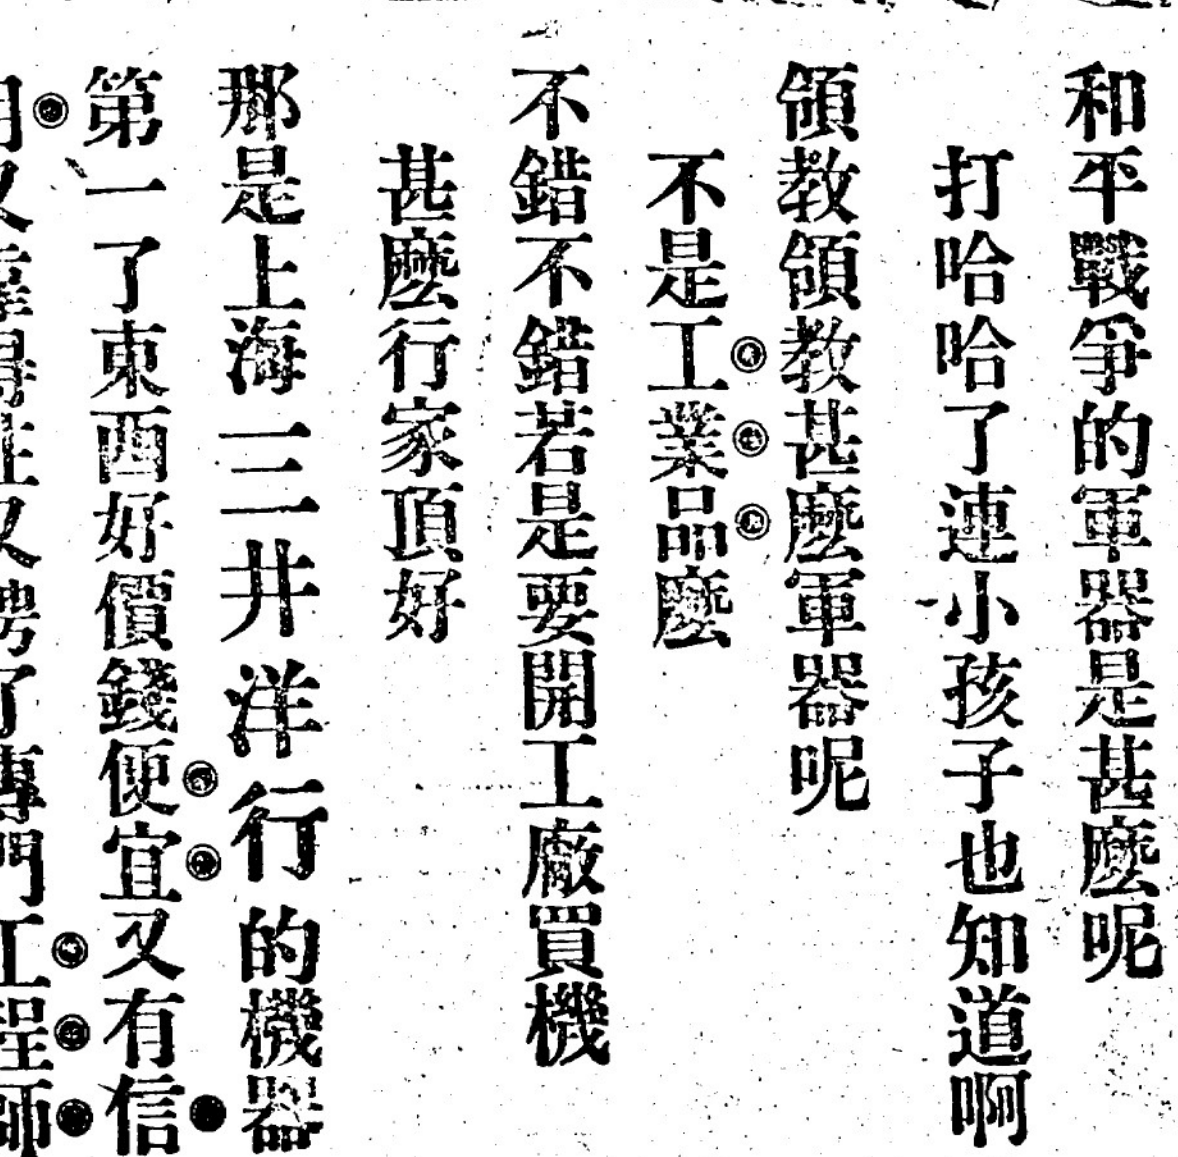 和平戰爭的軍器是甚麼呢
打哈哈了連小孩子也知道啊
領教領教甚麼軍器呢
不是工業品麼
不錯不錯若是要開工廠買機
甚麼行家頂好
那是上海三井洋行的機器
第一了東西好價錢便宜又有信
又聘了專門工程師